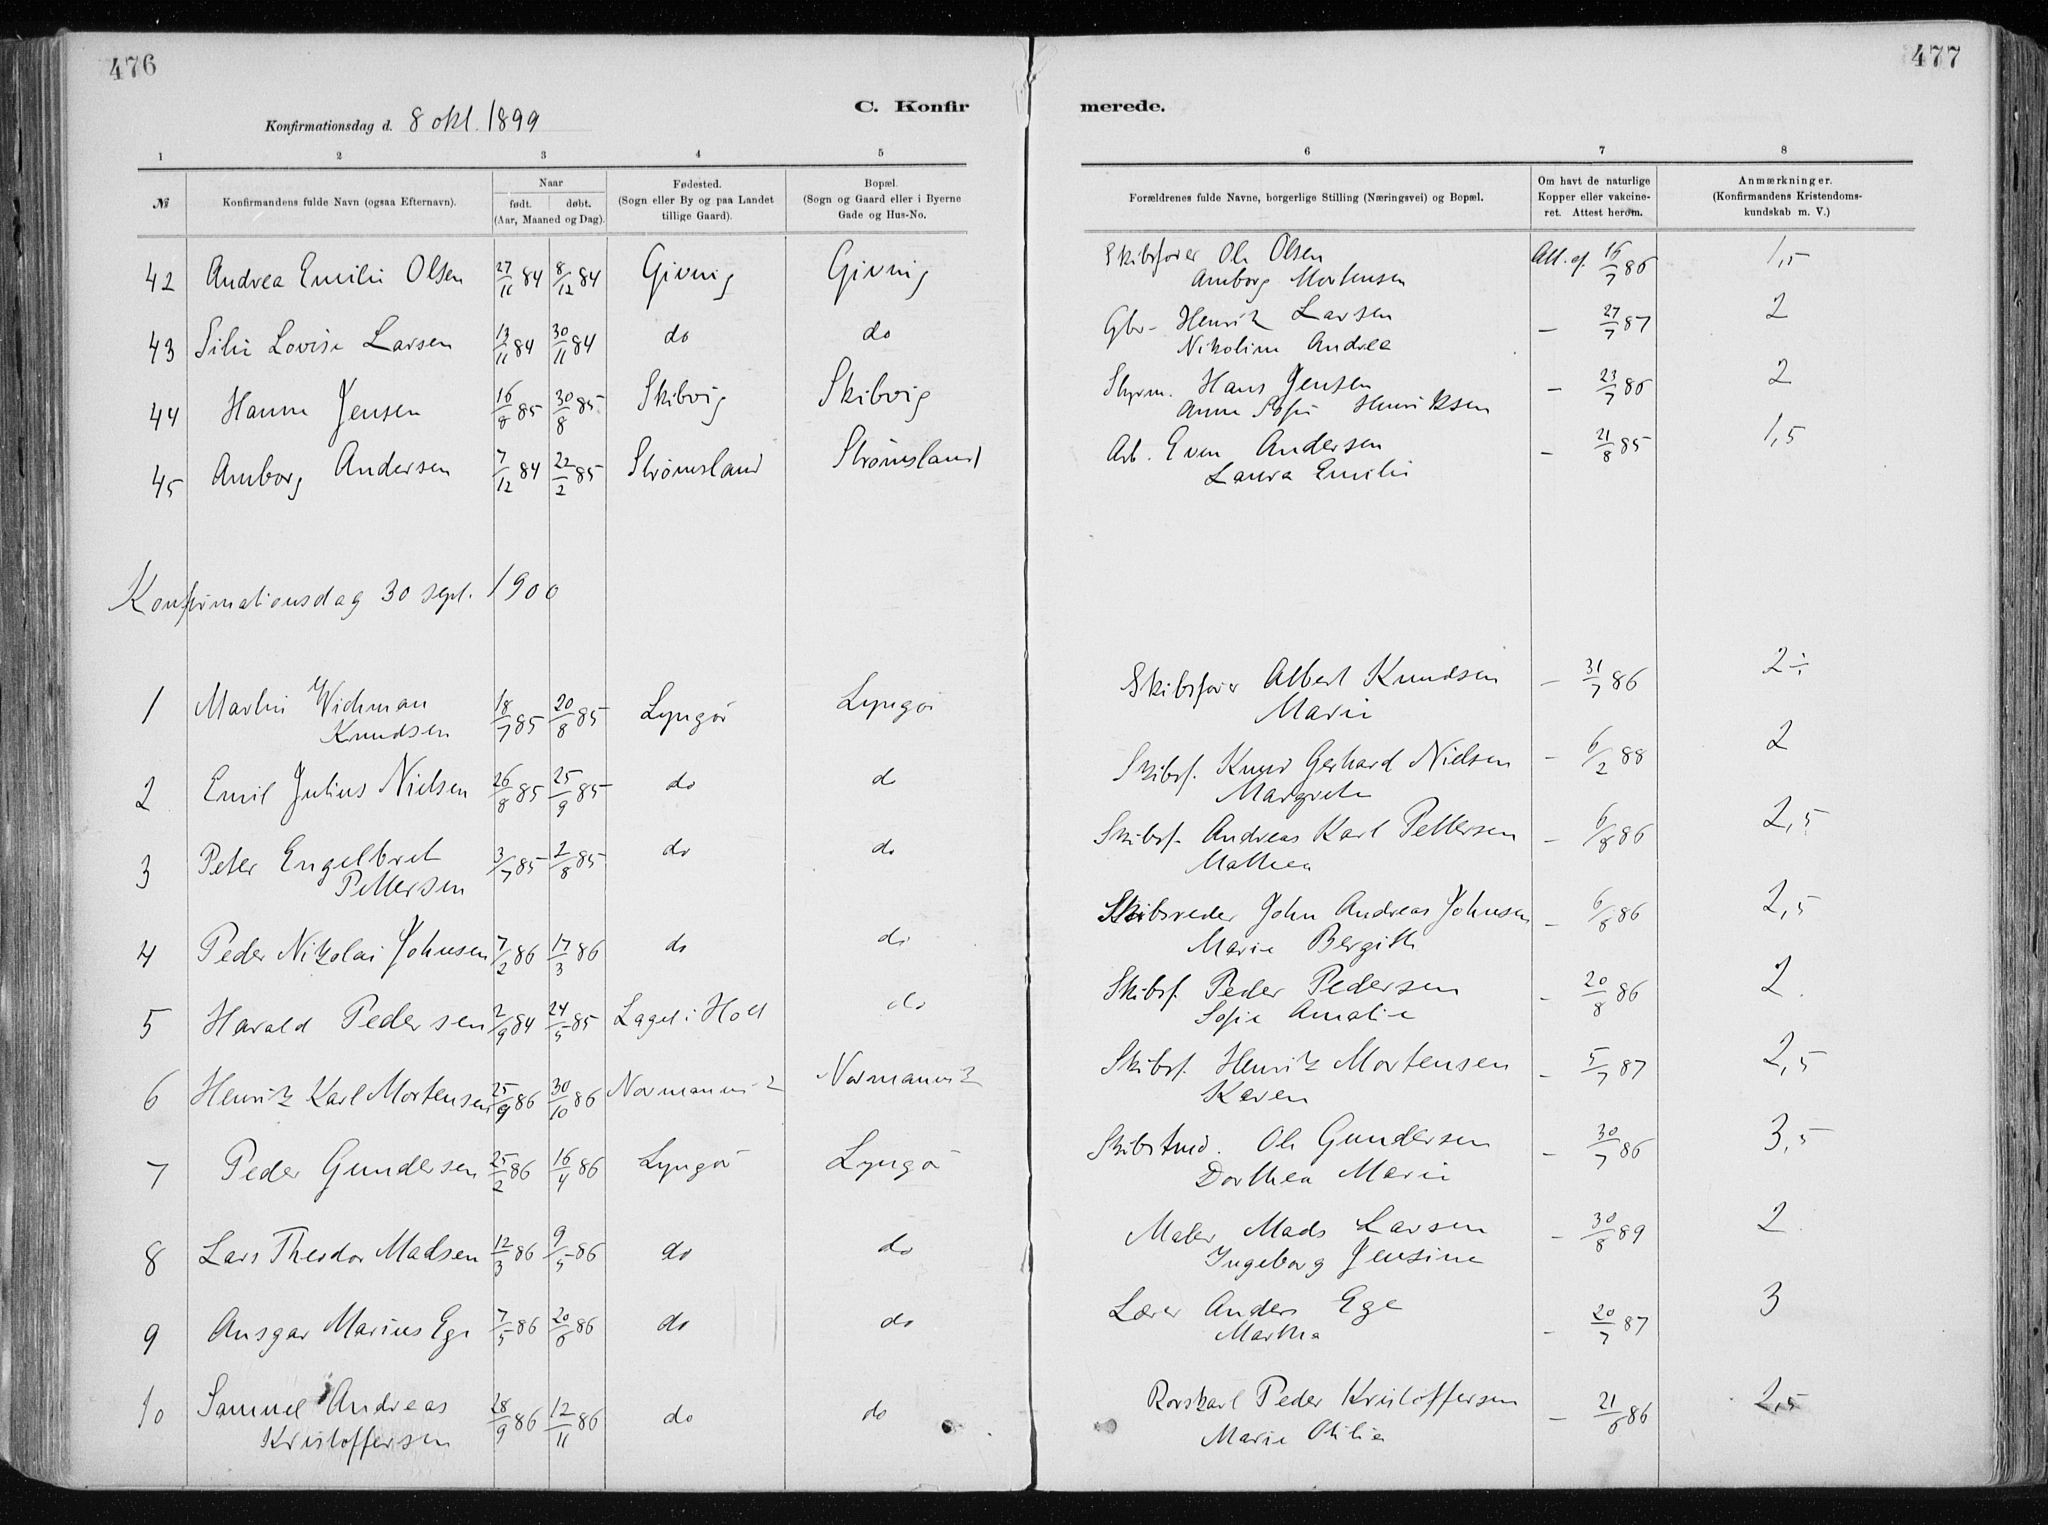 476
477
C. Konfirmerede.
Konfirmationsdag d. 8 okt. 1899
1 2 3 4 5 6 7 8
№ Konfirmandens fulde Navn (ogsaa Efternavn). Naar født. døbt. (Aar, Maaned og Dag). Fødested. (Sogn eller By og paa Landet tillige Gaard). Bopæl. (Sogn og Gaard eller i Byerne Gade og Hus-No. Forældrenes fulde Navne, borgerlige Stilling (Næringsvei) og Bopæl. Om havt de naturlige Kopper eller vakcineret. Attest herom. Anmærkninger. (Konfirmandens Kristendomskundskab m. V.)
42 Andrea Emilie Olsen 27/11 84 8/12 84 Giving Giving Skibsfører Ole Olsen Att. af 16/7 86 1,5
Amborg Mortensen
43 Silie Lovise Larsen 13/11 84 30/11 84 do do Gbr. Henrik Larsen - 27/7 87 2
Nikoline Andrea
44 Hanne Jensen 16/8 85 30/8 85 Skibvig Skibvig Styrm. Hans Jensen - 23/7 86 2
Anne Sofie Henriksen
45 Amborg Andersen 7/12 84 22/2 85 Strømsland Strømsland Arb. Even Andersen - 21/8 85 1,5
Laura Emilie
Konfirmationsdag 30 sept. 1900
1 Martin Wichman 18/7 85 20/8 85 Lyngør Lyngør Skibsfører Albert Knudsen - 31/7 86 2÷
Knudsen Marie
2 Emil Julius Nielsen 26/8 85 25/9 85 do do Skibsf. Knud Gerhard Nielsen - 6/2 88 2
Margrete
3 Peter Engelbret 3/7 85 2/8 85 do do Skibsf. Andreas Karl Pettersen - 6/8 86 2,5
Pettersen Mathea
4 Peder Nikolai Johnsen 7/2 86 17/3 86 do do Skibsreder John Andreas Johnsen - 6/8 86 2,5
Marie Bergith
5 Harald Pedersen 2/9 84 24/5 85 Laget i Holt do Skibsf. Peder Pedersen - 20/8 86 2.
Sofie Amalie
6 Henrik Karl Mortensen 25/9 86 30/10 86 Normannvik Normannvik Skibsf. Henrik Mortensen - 5/7 87 2,5
Karen
7 Peder Gundersen 25/2 86 16/4 86 Lyngør Lyngør Skibstmd. Ole Gundersen - 30/7 86 3,5
Dorthea Marie
8 Lars Theodor Madsen 12/3 86 9/5 86 do do Maler Mads Larsen - 30/8 89 2
Ingeborg Jensine
9 Ansgar Marius Ege 7/5 86 20/6 86 do do Lærer Anders Ege - 20/7 87 3
Martha
10 Samuel Andreas 28/9 86 12/11 86 do do Rorskarl Peder Kristoffersen - 21/6 86 2,5
Kristoffersen Marie Otilie